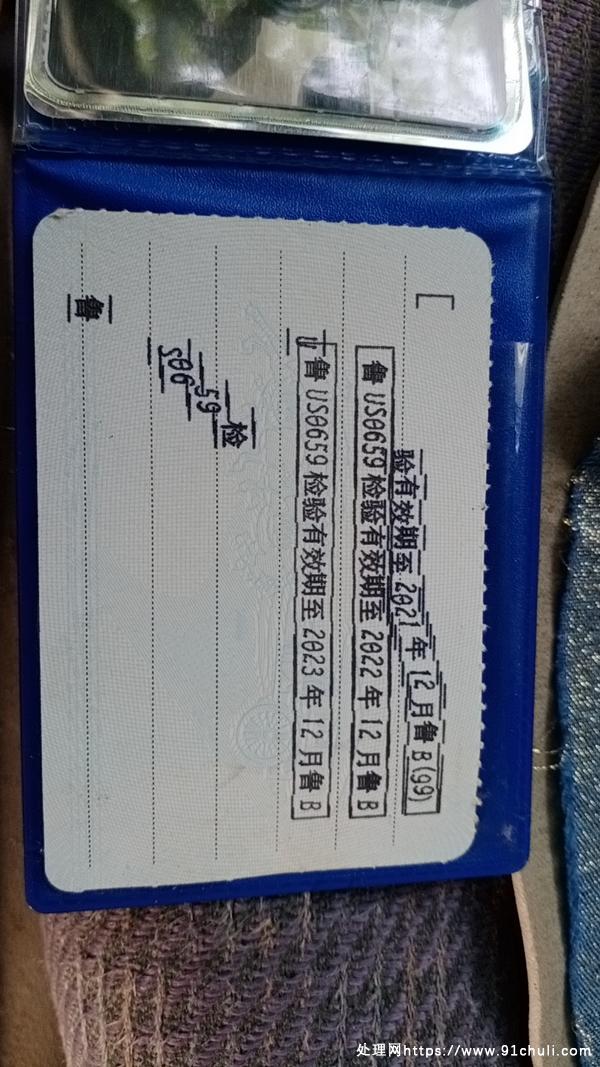 验有效期至2021年12月鲁B(99)
鲁US0659检验有效期至2022年12月鲁B
鲁US0659检验有效期至2023年12月鲁B
U
检
59
S06
鲁
处理网https://www.91chuli.com